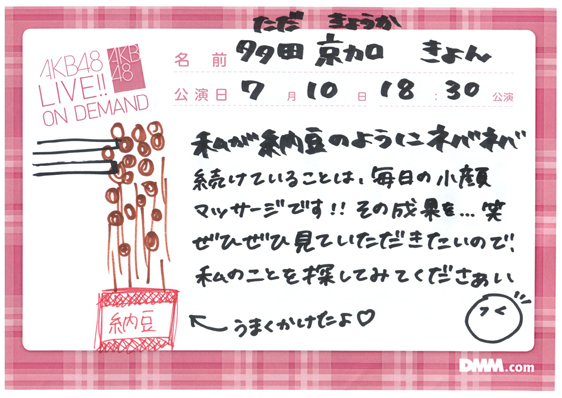 AKB48
LIVE!!
ON DEMAND
AKB
48
ただ きょうか
名前 多田 京加 きょん
公演日 7月10日 18:30公演
私が納豆のようにネバネバ
続けていることは、毎日の小顔
マッサージです!! その成果を…笑
ぜひぜひ見ていただきたいので、
私のことを探してみてくださぁい
納豆
←うまくかけたよ♡
DMM.com